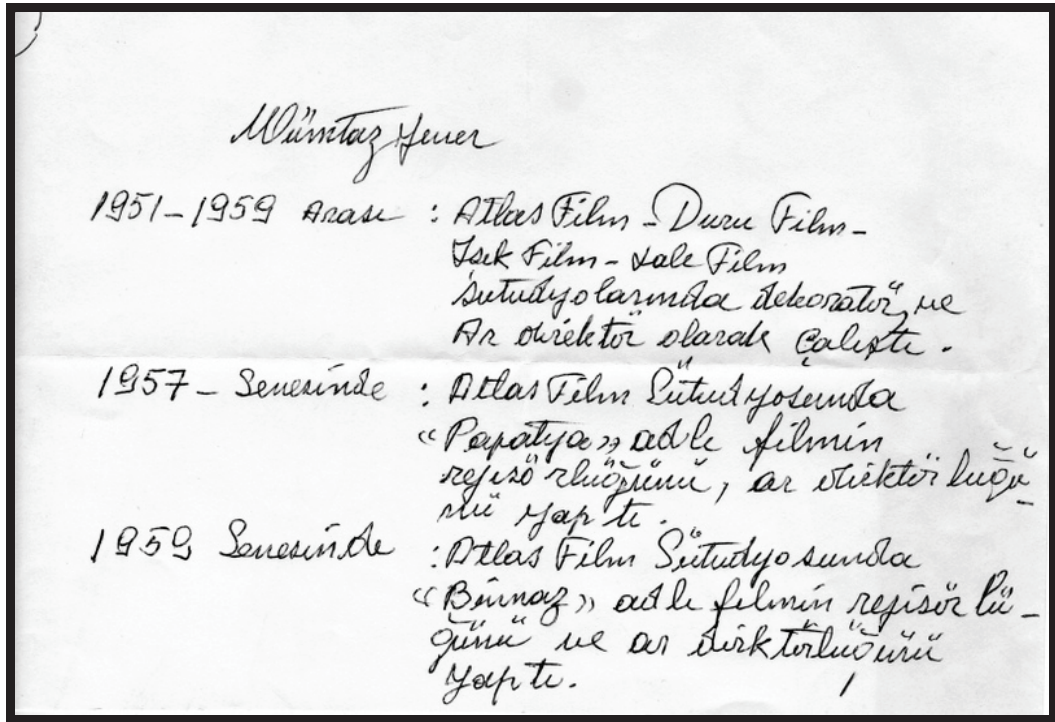 Mümtaz Yener
1951-1959 Arası : Atlas Film - Duru Film -
Işık Film - Lale Film
Sütudyolarında dekoratör ve
Ar direktör olarak çalıştı.
1957 - Senesinde : Atlas Film Sütudyosunda
"Papatya" adlı filmin
rejisörlüğünü, ar direktörlüğü-
nü yaptı.
1959 Senesinde : Atlas Film Sütudyosunda
"Binnaz" adlı filmin rejisörlü-
ğünü ve ar dirktörlüğünü
yaptı.